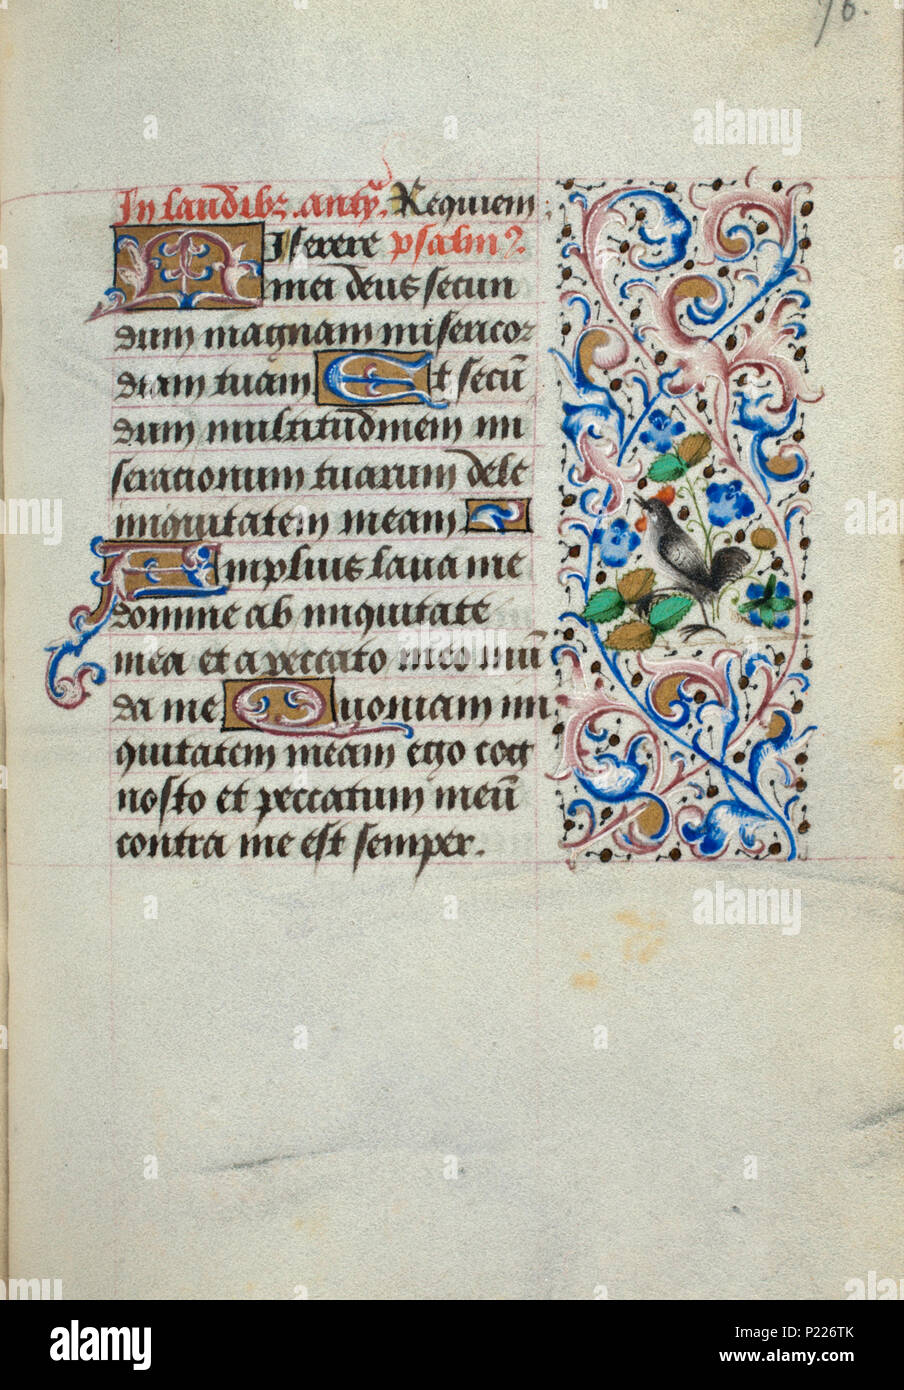 76.
In laudibz . anty. Requiem
Miserere psalm?
mei deus secun
dum magnam misericor
diam tuam Et secū
dum multitudinem mi
serationum tuarum dele
iniquitatem meam
Amplius laua me
domine ab iniquitate
mea et a peccato meo mū
da me Quoniam ini
quitatem meam ego cog
nosco et peccatum meū
contra me est semper.
alamy
alamy
alamy
alamy
www.alamy.com
Image ID: P226TK